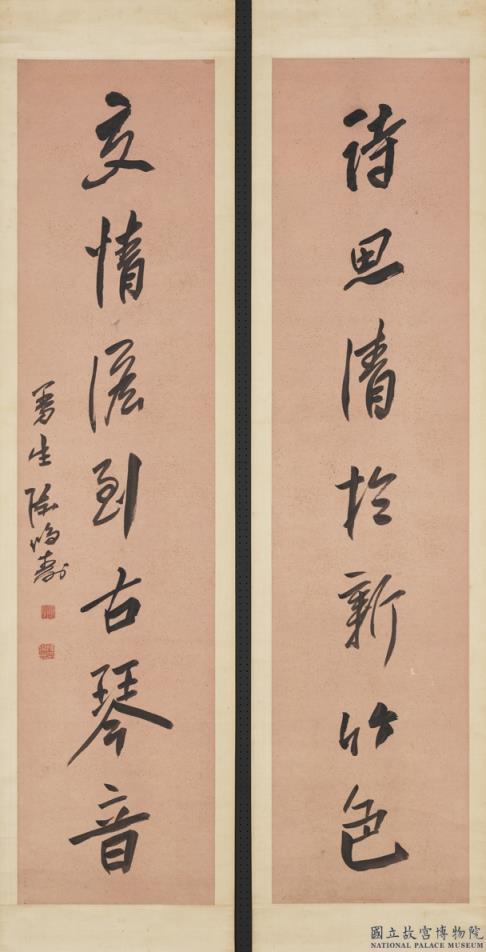 詩思清於新竹色
交情澹到古琴音
曼生陳鴻壽
國立故宮博物院
NATIONAL PALACE MUSEUM